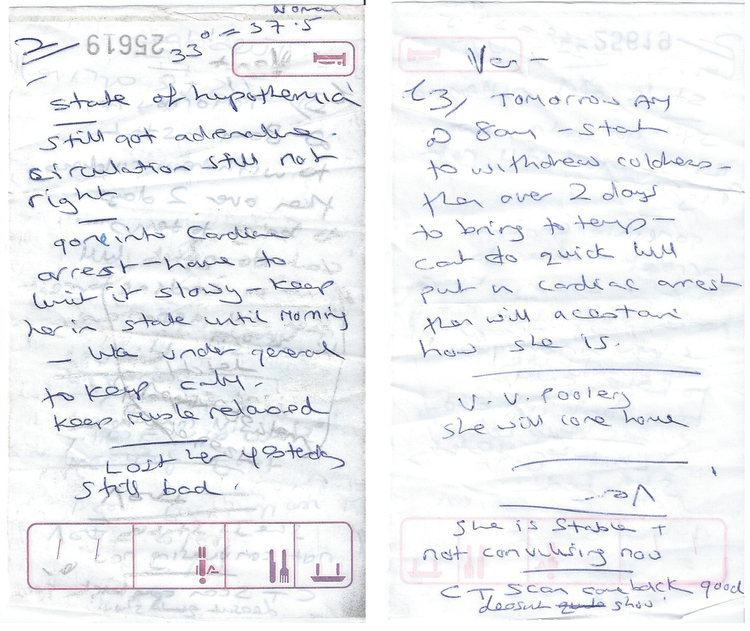 Normal
2
33° = 37.5
25619
State of hypothermia
still got adrenaline.
circulation still not
right
gone into Cardiac
arrest - have to
it slowy - keep
her in state until Morning
- like under general
to keep calm.
keep relaxed
Lost her yesterday
still bad.
25619
Ver -
(3) TOMORROW AM
@ 8am - start
to withdrew coldness -
then over 2 days
to bring to temp -
cant do quick will
put n cardiac arrest
then will acestain
how she is.
V. V. Poorley
she will come home
she is stable +
not convulsing now
CT Scan come back good
doesnt show